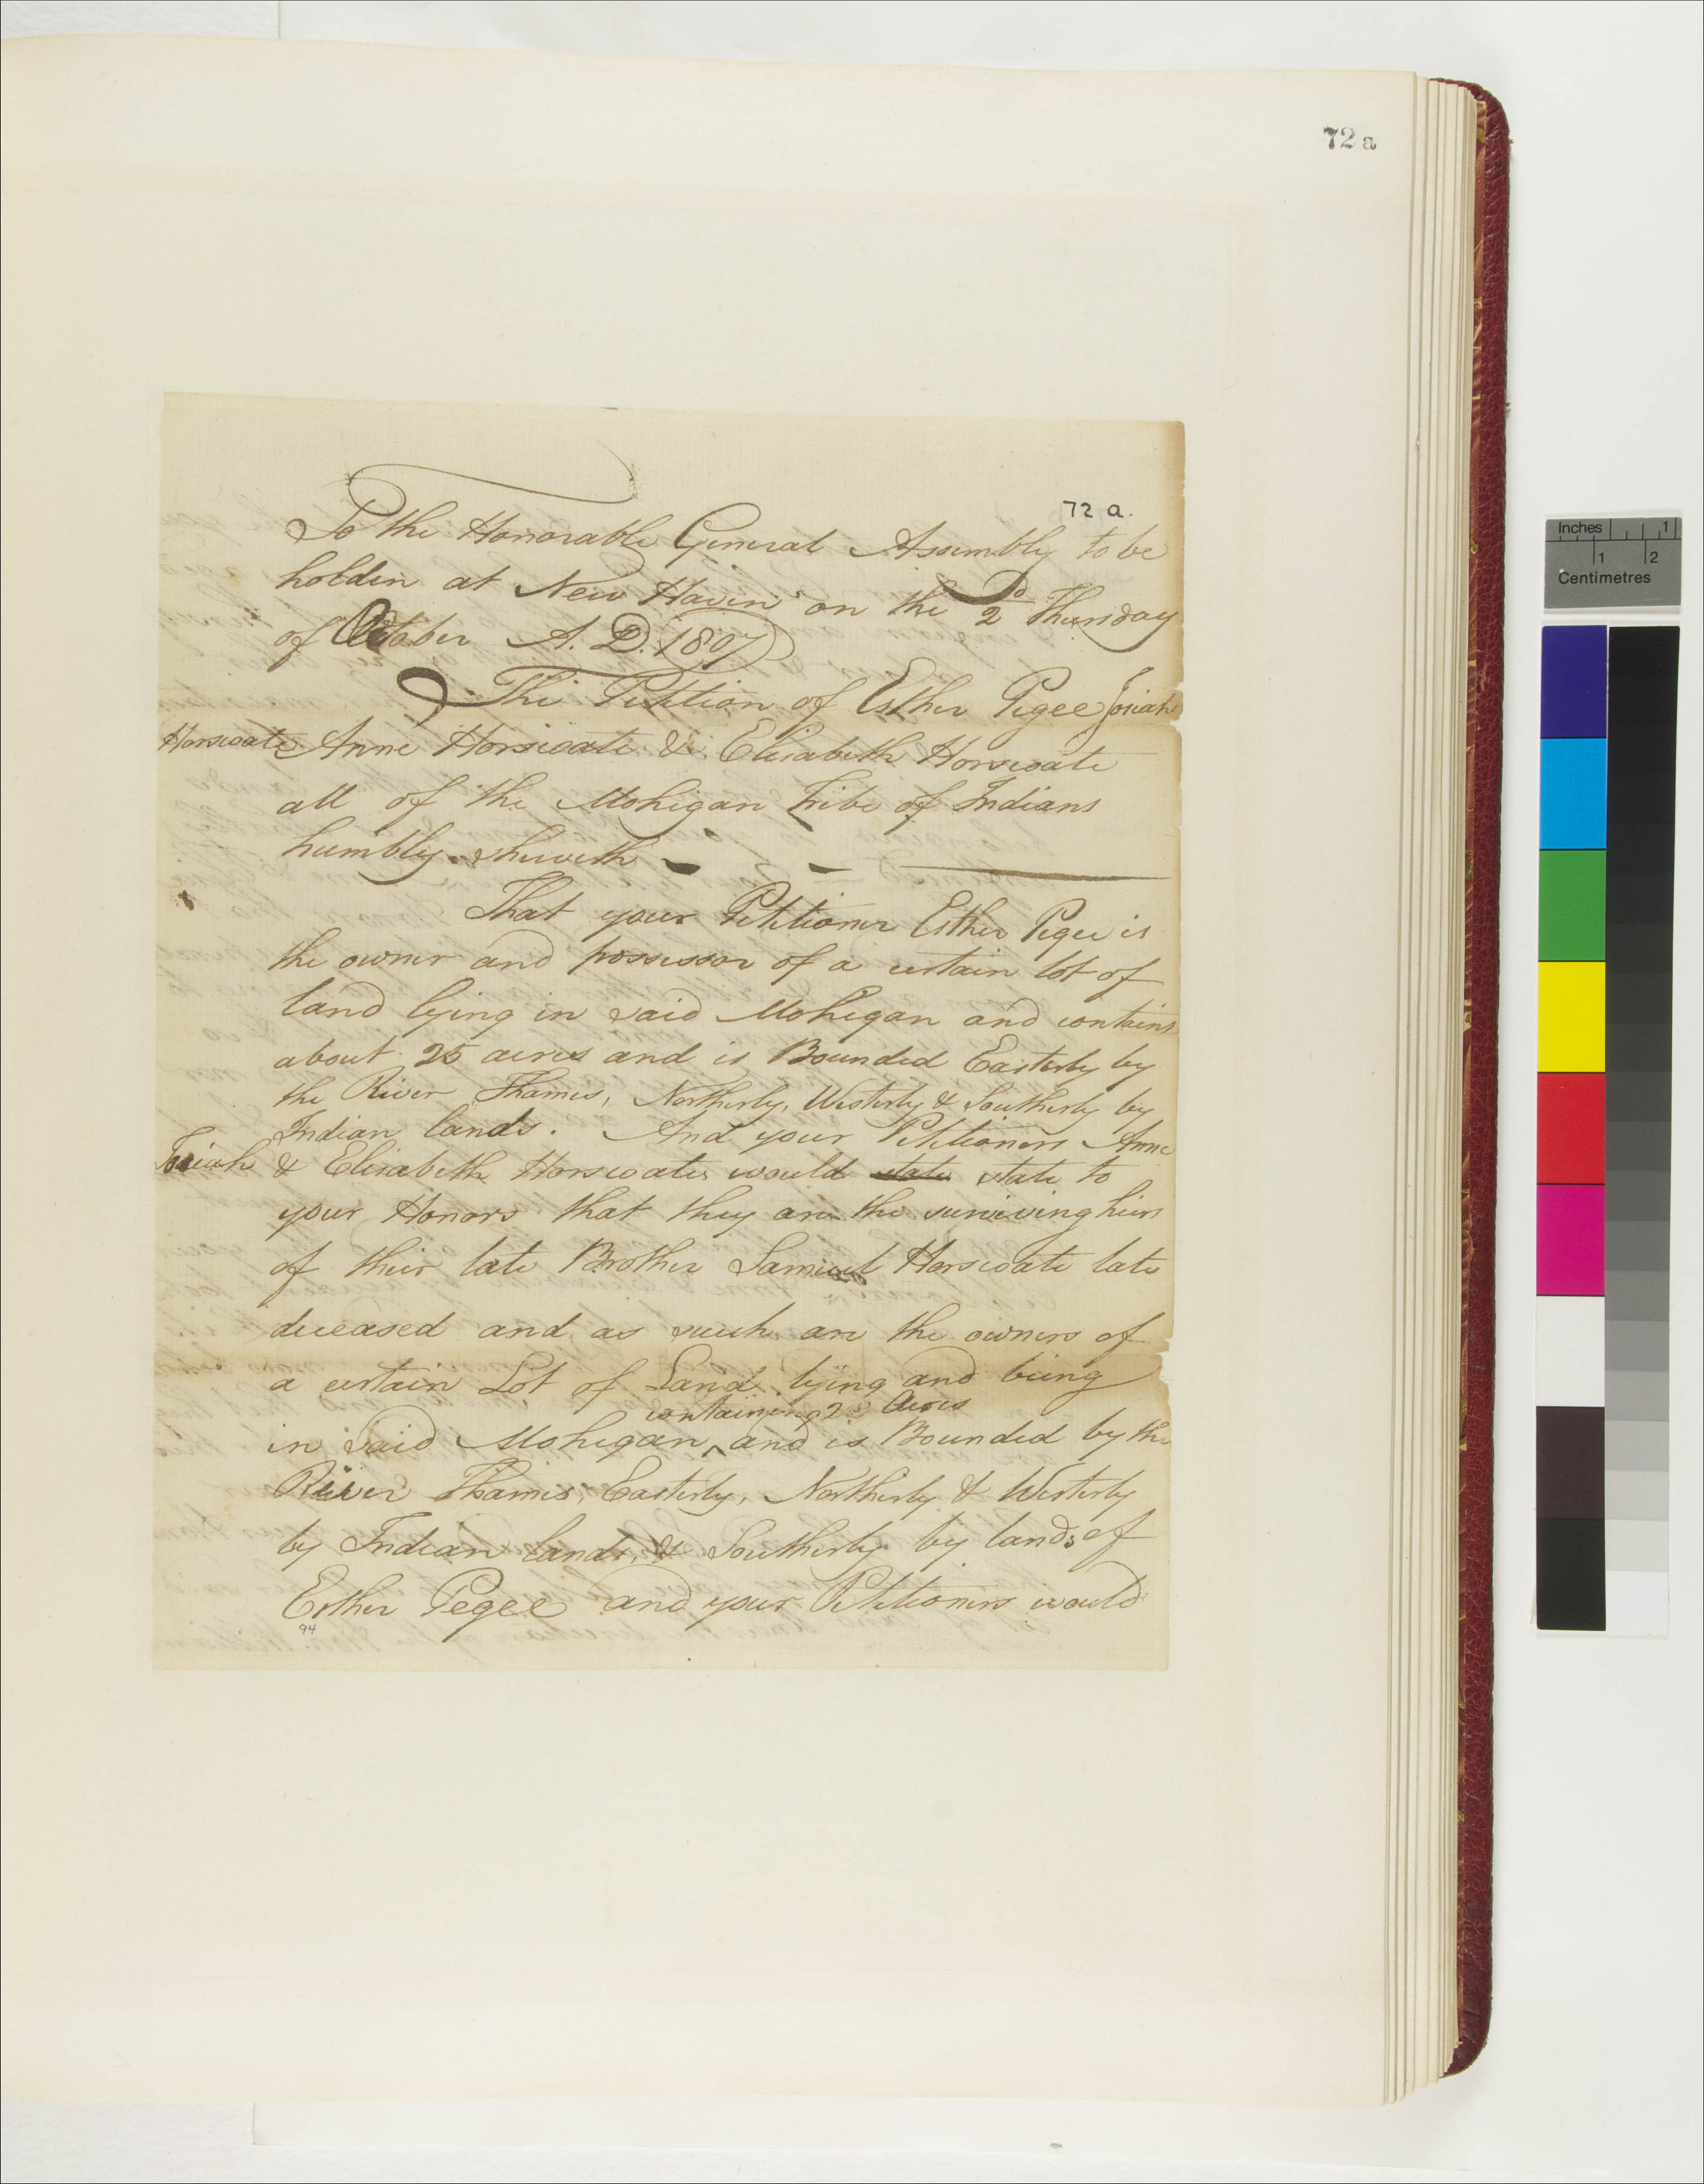 72 a
72 a.
To the Honorable General Assembly to be
holden at New Haven on the 2d Thursday
of October A. D. 1807
The Petition of Esther Pegee Josiah
Horscoate Anne Horscoate & Elisabeth Horscoate
all of the Mohegan Tribe of Indians
humbly sheweth
That your Petitioner Esther Pegee is
the owner and possessor of a certain lot of
land lying in said Mohegan and contains
about 25 acres and is Bounded Easterly by
the River Thames, Northerly, Westerly & Southerly by
Indian lands. And your Petitioners Anne
Josiah & Elisabeth Horscoate would state state to
your Honors that they are the surviving heirs
of their late Brother Samuel Horscoate late
deceased and as such are the owners of
a certain Lot of Land lying and being
containing 25 Acres
in said Mohegan ^ and is Bounded by the
River Thames Easterly, Northerly & Westerly
by Indian lands, & Southerly by lands of
Esther Pegee and your Petitioners would
94
Inches 1
1 2
Centimetres